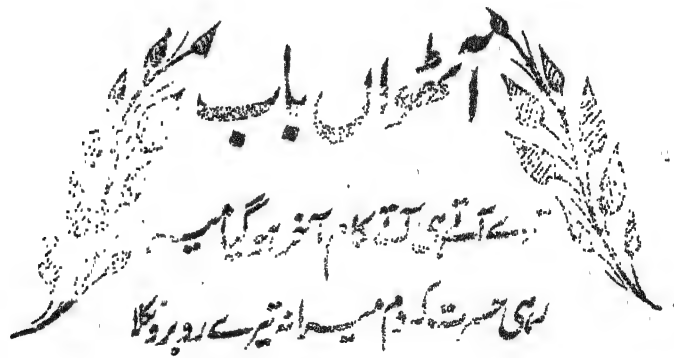 آٹھواں باب
ترے آتے ہی آتے کام آخر ہو گیا میرا
رہی حسرت کہ دم میرا نہ تیرے روبرو نکلا